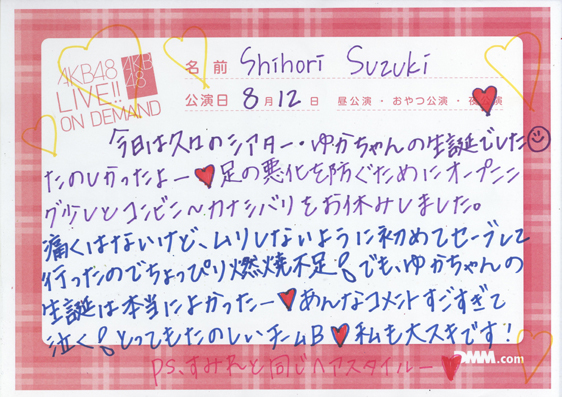 AKB48
LIVE!!
ON DEMAND
AKB
48
名前 Shihori Suzuki
公演日 8月12日 昼公演・おやつ公演・夜公演
今日は久々のシアター・ゆかちゃんの生誕でした
たのしかったよー♥足の悪化を防ぐためにオープニン
グ少しとコンビニ〜カナシバリをお休みしました。
痛くはないけど、ムリしないように初めてセーブして
行ったのでちょっぴり燃焼不足!でも、ゆかちゃんの
生誕は本当によかったー♥あんなコメントすごすぎて
泣く!とってもたのしいチームB♥私も大スキです!
P.S、すみれと同じヘアスタイルー♥
DMM.com